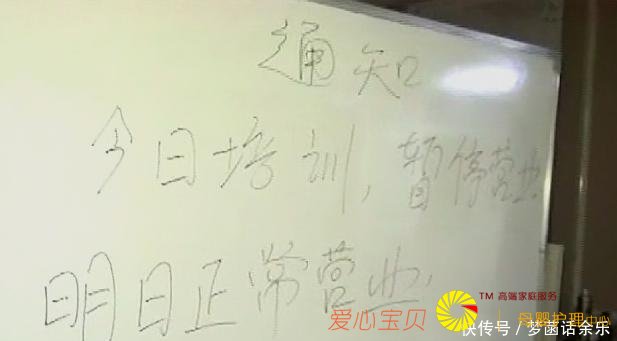 通知
今日培训，暂停营业
明日正常营业.
爱心宝贝
TM 高端家庭服务
母婴护理
快传号／梦菡话余乐